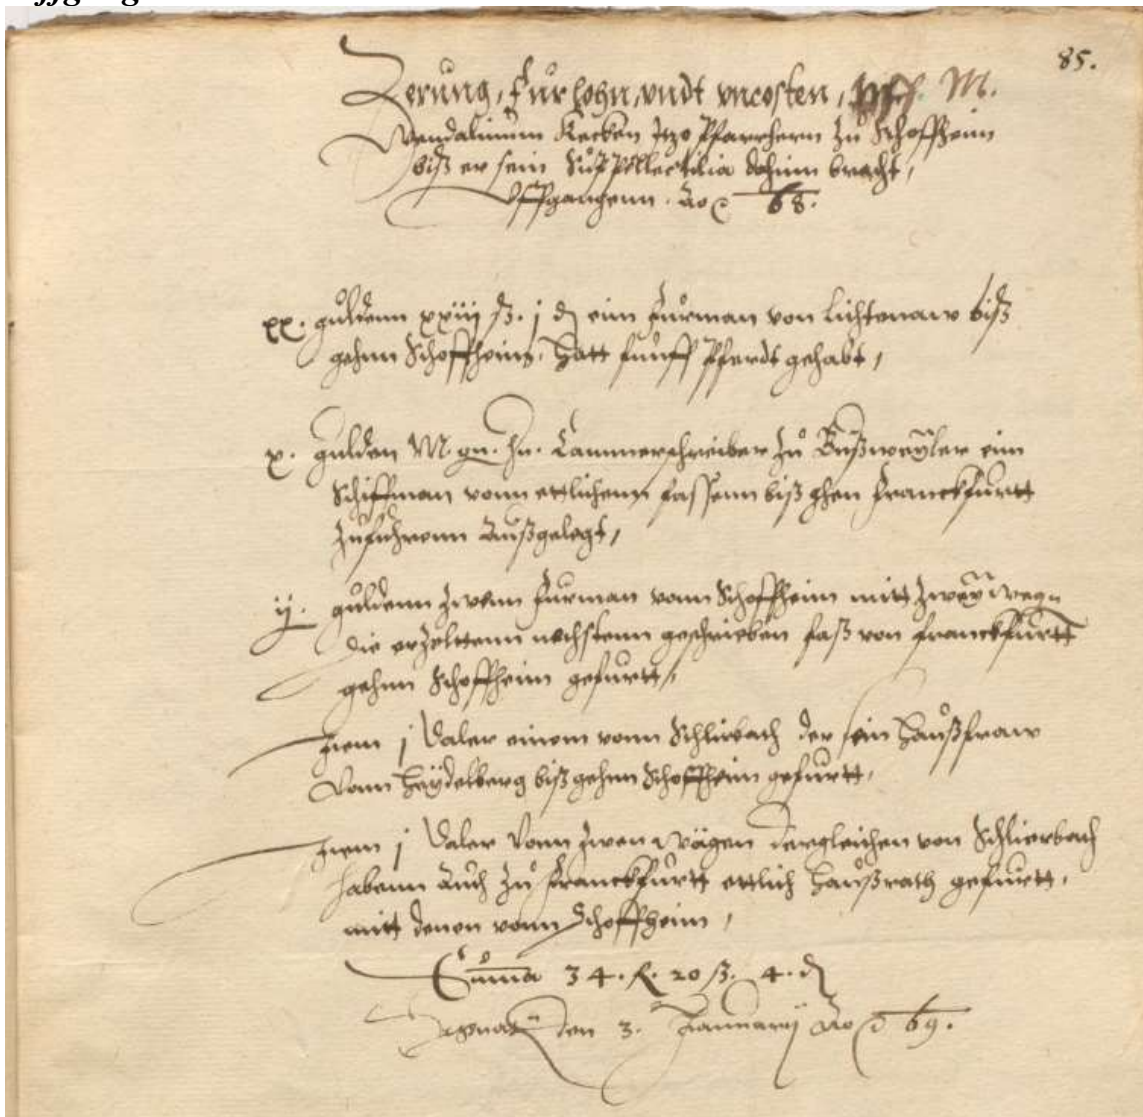 85.
Zerung, fur lohn, undt uncosten, M.
Wendalinum Kecken Itzo Pfarrhern zu Schoffheim
biß er sein Suppellectilia dahinn bracht,
Uffgangenn. Ao 68.
xx. guldenn xxiij ß. j d eim furman von Lichtenaw biß
gehnn Schoffheim, hatt funff Pferdt gehabt,
x. gulden M. gn. hn. Cammerschreiber zu Bußweyler eim
Schiffman vonn ettlichenn fassenn biß ghen Franckfurtt
zufuhrenn außgelegt,
ij. guldenn zwenn furman vonn Schoffheim mitt zwey wegn
die erzelttenn nechstenn geschrieben faß von Franckfurtt
gehnn Schoffheim gefurtt,
Item j Daler einem vonn Schlirbach der sein haußfraw
vonn Heydelberg biß gehnn Schoffheim gefurtt,
Item j Daler vonn zwen wägen dergleichen von Schlierbach
habenn auch zu Franckfurtt ettlich haußrath gefurtt,
mitt denen vonn Schoffheim,
Suma 34. fl. 20 ß. 4. d
Signatū den 3. Januarij Ao 69.